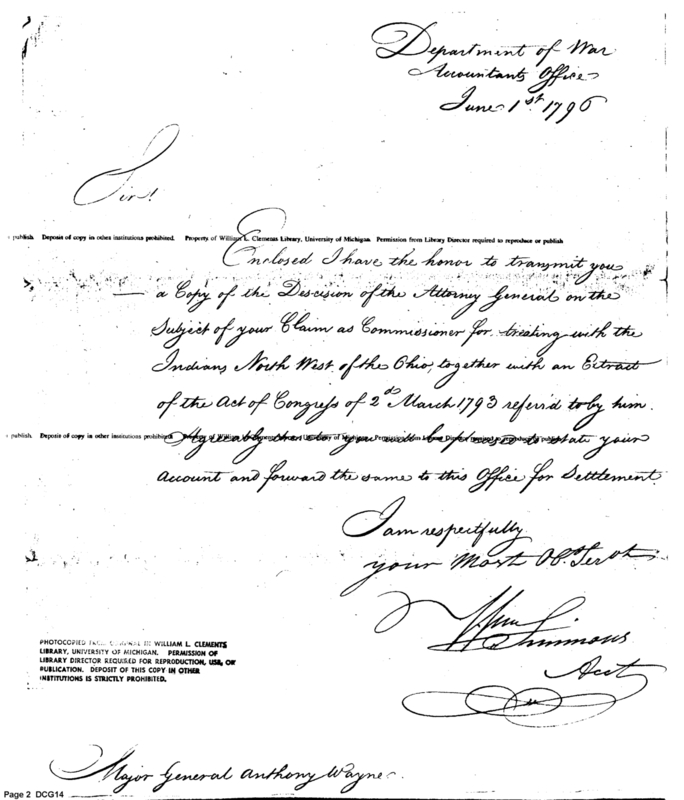 Department of War
Accountants Office
June 1st. 1796
Sir!
o publish. Deposit of copy in other institutions prohibited. Property of William L. Clements Library, University of Michigan. Permission from Library Director required to reproduce or publish
Enclosed I have the honor to transmit you
a Copy of the Descision of the Attorney General on the
Subject of your Claim as Commissioner for treating with the
Indians North West of the Ohio, together with an Extract
of the Act of Congress of 2d March 1793 referr'd to by him.
publish. Deposit of copy in other institutions prohibited. Property of William L. Clements Library, University of Michigan. Permission from Library Director required to
Agreeably thereto you will be pleased to state your
Account and forward the same to this Office for Settlement.
I am respectfully
your Most Obt. Servt.
Wm Simmons
Acct
PHOTOCOPIED FROM ORIGINAL IN WILLIAM L. CLEMENTS
LIBRARY, UNIVERSITY OF MICHIGAN. PERMISSION OF
LIBRARY DIRECTOR REQUIRED FOR REPRODUCTION, USE, OR
PUBLICATION. DEPOSIT OF THIS COPY IN OTHER
INSTITUTIONS IS STRICTLY PROHIBITED.
Major General Anthony Wayne.
Page 2 DCG14